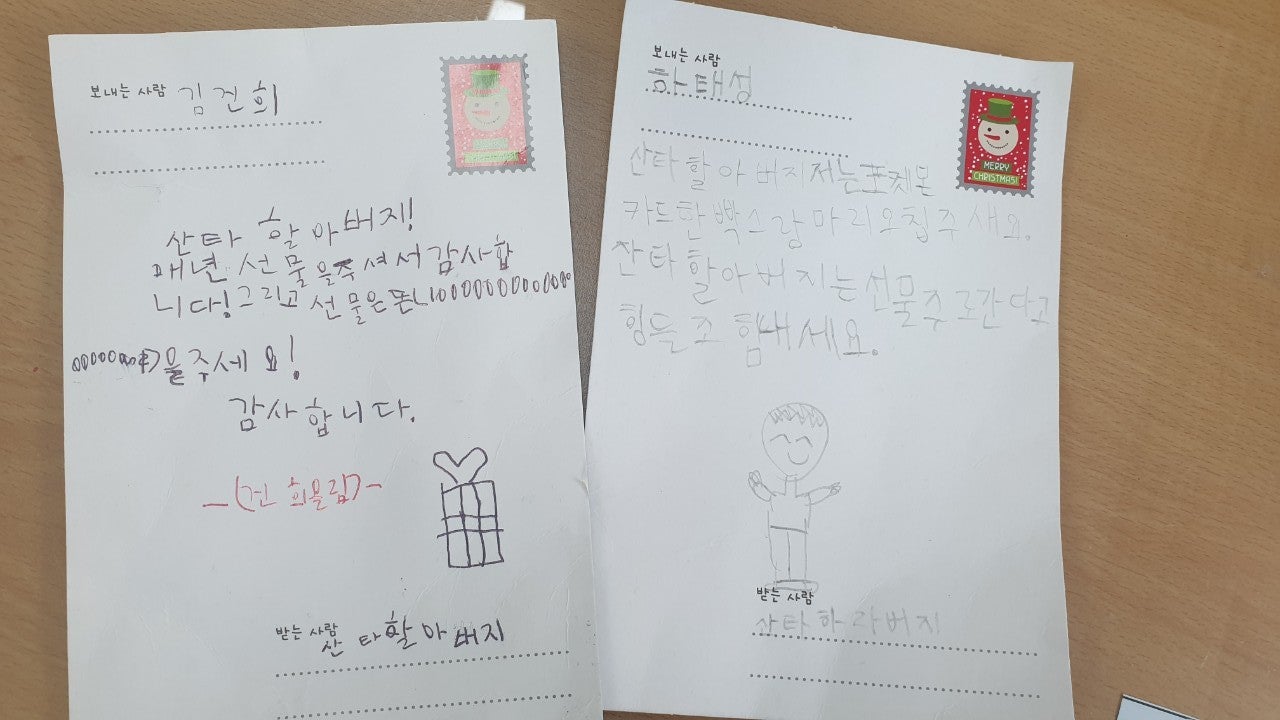 보내는 사람 김건희
산타 할아버지!
매년 선물을주셔서감사합
니다! 그리고 선물은돈
을주세요!
감사합니다.
-(건희올림)-
받는 사람
산타할아버지
보내는 사람
하태성
MERRY
CHRISTMAS!
산타할아버지저는포켓몬
카드한빡스랑마리오칩주새요.
산타할아버지는선물주로간다고
힘내세요.
받는 사람
산타하라버지